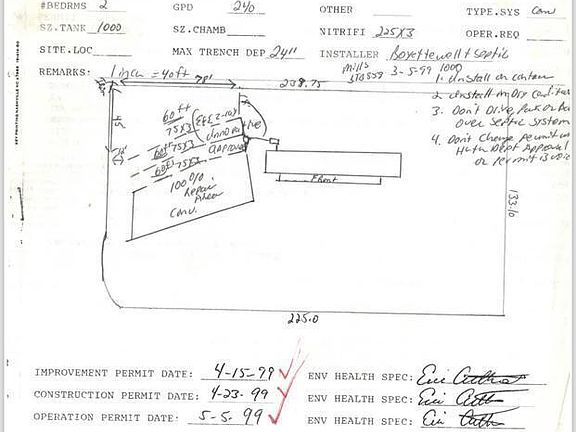 #BEDRMS 2 GPD 240 OTHER TYPE.SYS Conv
SZ.TANK 1000 SZ.CHAMB NITRIFI 225X3 OPER.REQ
SITE.LOC MAX TRENCH DEP 24" INSTALLER Boyette well & septic
REMARKS: 1 inch = 40ft Mills STB 3-5-99 1000
238.75
1. Install on contour
2. Install in Dry Conditions
3. Don't Drive, Park or
over Septic System
4. Don't Change permit
Hlth Dept Approval
or permit is void
60ft
75X3
Innovative
approved
60ft 75X3
60ft 75X3
100%
Repair
Area
Conv.
Front
133.10
225.0
IMPROVEMENT PERMIT DATE: 4-15-99 ENV HEALTH SPEC: Eric
CONSTRUCTION PERMIT DATE: 4-23-99 ENV HEALTH SPEC: Eric
OPERATION PERMIT DATE: 5-5-99 ENV HEALTH SPEC: Eric